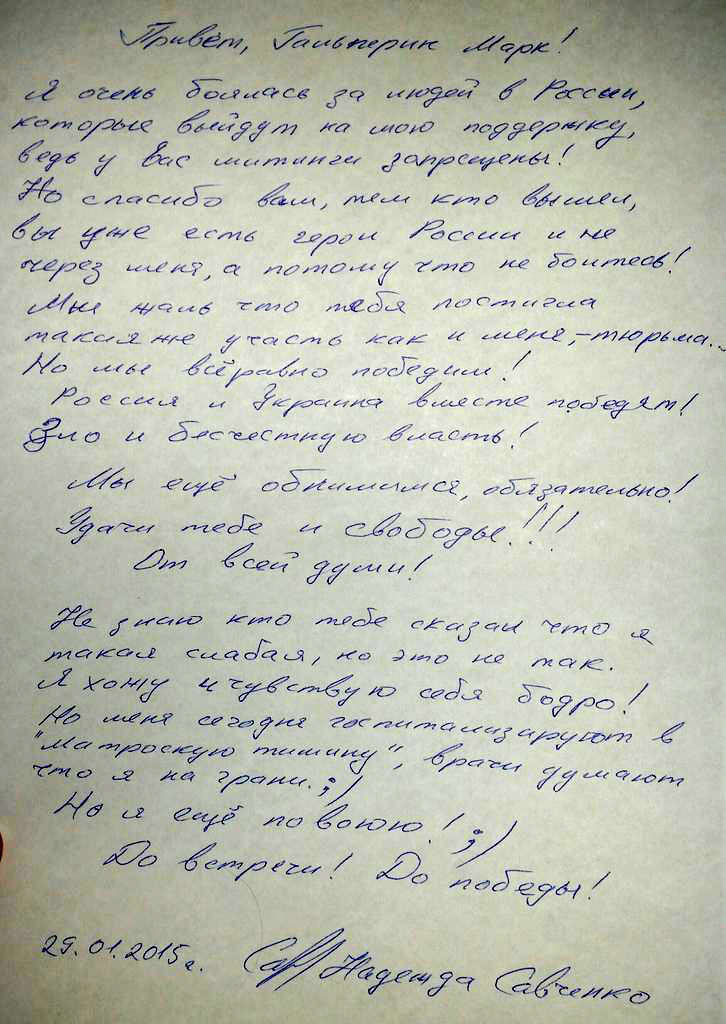 Привет, Гальперин Марк!
Я очень боялась за людей в России,
которые выйдут на мою поддержку,
ведь у Вас митинги запрещены!
Но спасибо вам, тем кто вышел,
вы уже есть герои России и не
через меня, а потому что не боитесь!
Мне жаль что тебя постигла
такая же участь как и меня, – тюрьма...
Но мы всёравно победим!
Россия и Украина вместе победят!
Зло и бесчестную власть!
Мы ещё обнимимся, обязательно!
Удачи тебе и свободы!!!
От всей души!
Не знаю кто тебе сказал что я
такая слабая, но это не так.
Я хожу и чувствую себя бодро!
Но меня сегодня госпитализируют в
"Матроскую тишину", врачи думают
что я на грани. ;)
Но я ещё повоюю! ;)
До встречи! До победы!
29.01.2015г. Сав// Надежда Савченко